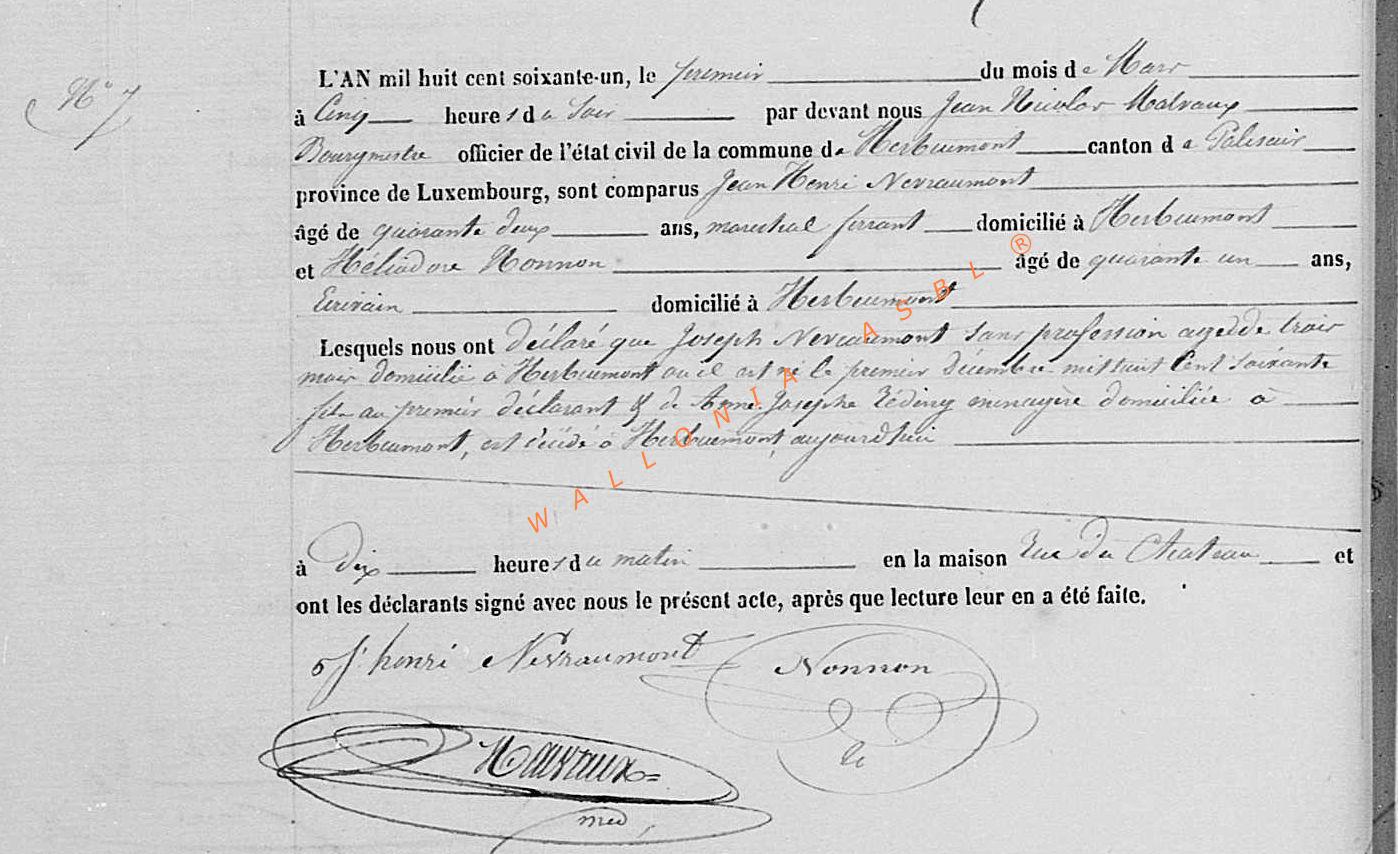 N° 7
L'AN mil huit cent soixante-un, le premier du mois de Mars
à Cinq heures du Soir par devant nous Jean Nicolas Malvaux
Bourgmestre officier de l'état civil de la commune de Herbeumont canton de Paliseuil
province de Luxembourg, sont comparus Jean Henri Nevraumont
âgé de quarante deux ans, marechal ferrant domicilié à Herbeumont
et Héliodore Nonnon âgé de quarante un ans,
Ecrivain domicilié à Herbeumont
Lesquels nous ont déclaré que Joseph Nevraumont sans profession agé de trois
mois domicilié à Herbeumont où il est né le premier Décembre mil huit Cent soixante
fils du premier déclarant & de Anne Josephe Réding menagère domiciliée à
Herbeumont, est décédé à Herbeumont, aujourd'hui
à Dix heures du matin en la maison Rue du Chateau et
ont les déclarants signé avec nous le présent acte, après que lecture leur en a été faite.
J. henri Nevraumont Nonnon
WALLONIA ASBL ®